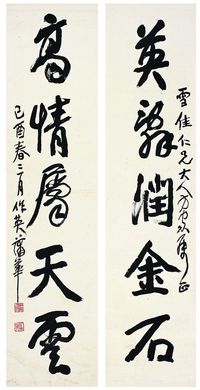 英辭潤金石
高情屬天雲
雪佳仁兄大人方家屬正
己酉春三月作英蒲華